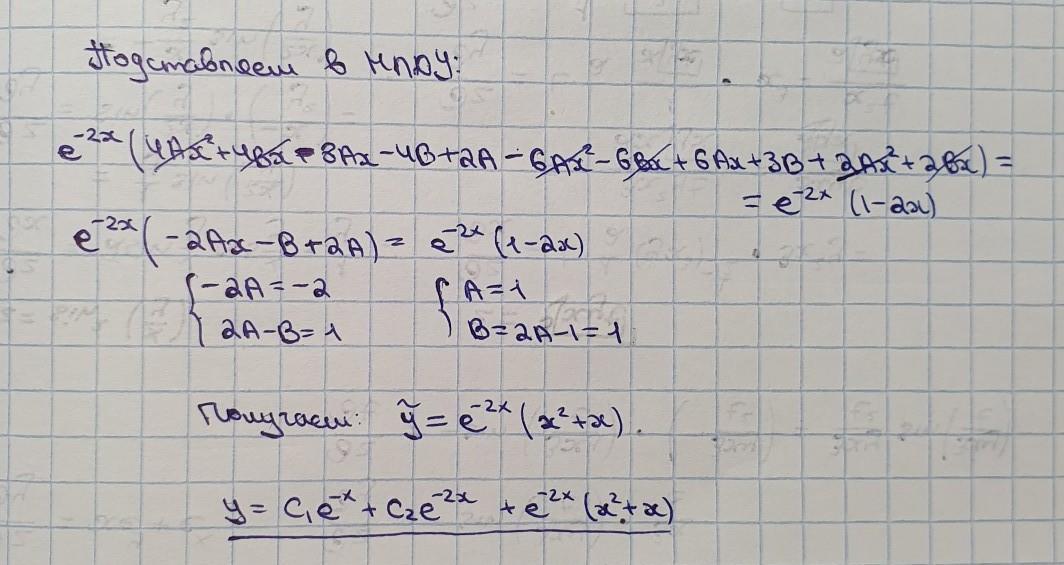 Подставляем в НЛДУ:
e^{-2x}(4Ax²+4Bx-8Ax-4B+2A-6Ax²-6Bx+6Ax+3B+2Ax²+2Bx)=
=e^{-2x}(1-2x)
e^{-2x}(-2Ax-B+2A)= e^{-2x}(1-2x)
{-2A=-2 {A=1
2A-B=1 B=2A-1=1
Получаем: ỹ=e^{-2x}(x²+x).
y= C₁e^{-x}+C₂e^{-2x} +e^{-2x}(x²+x)